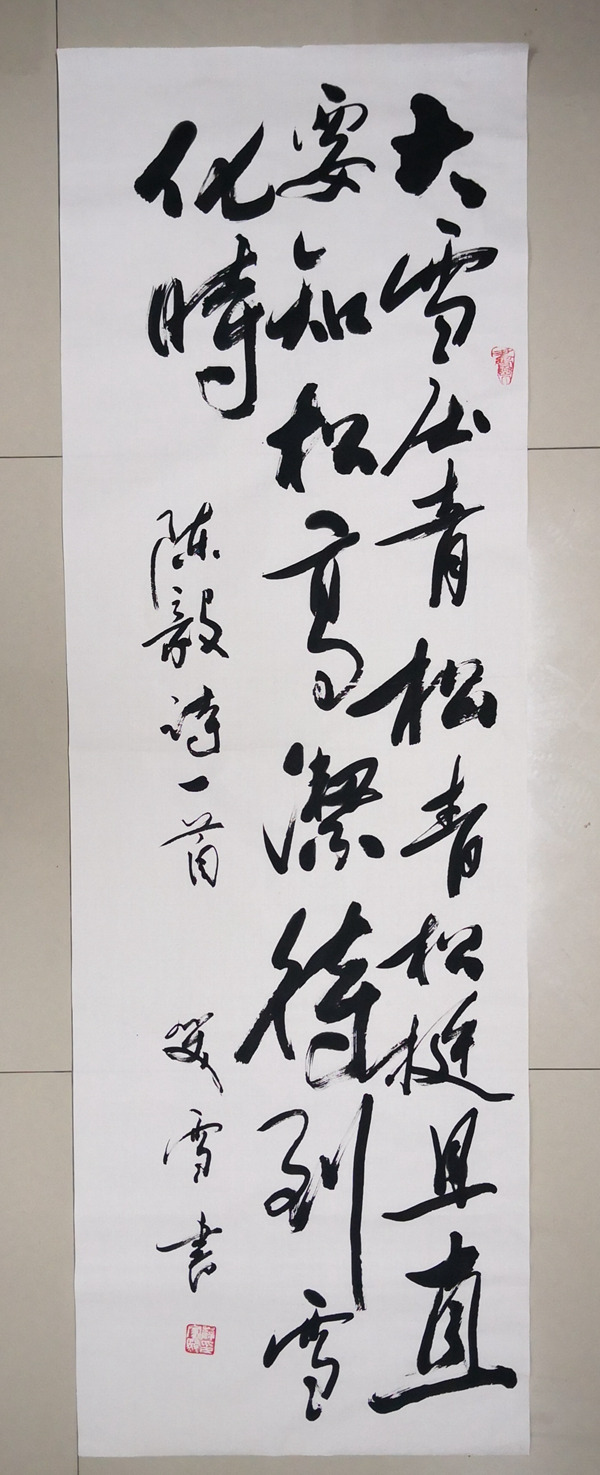 大雪压青松青松挺且直
要知松高潔待到雪
化時
陈毅诗一首
雪书